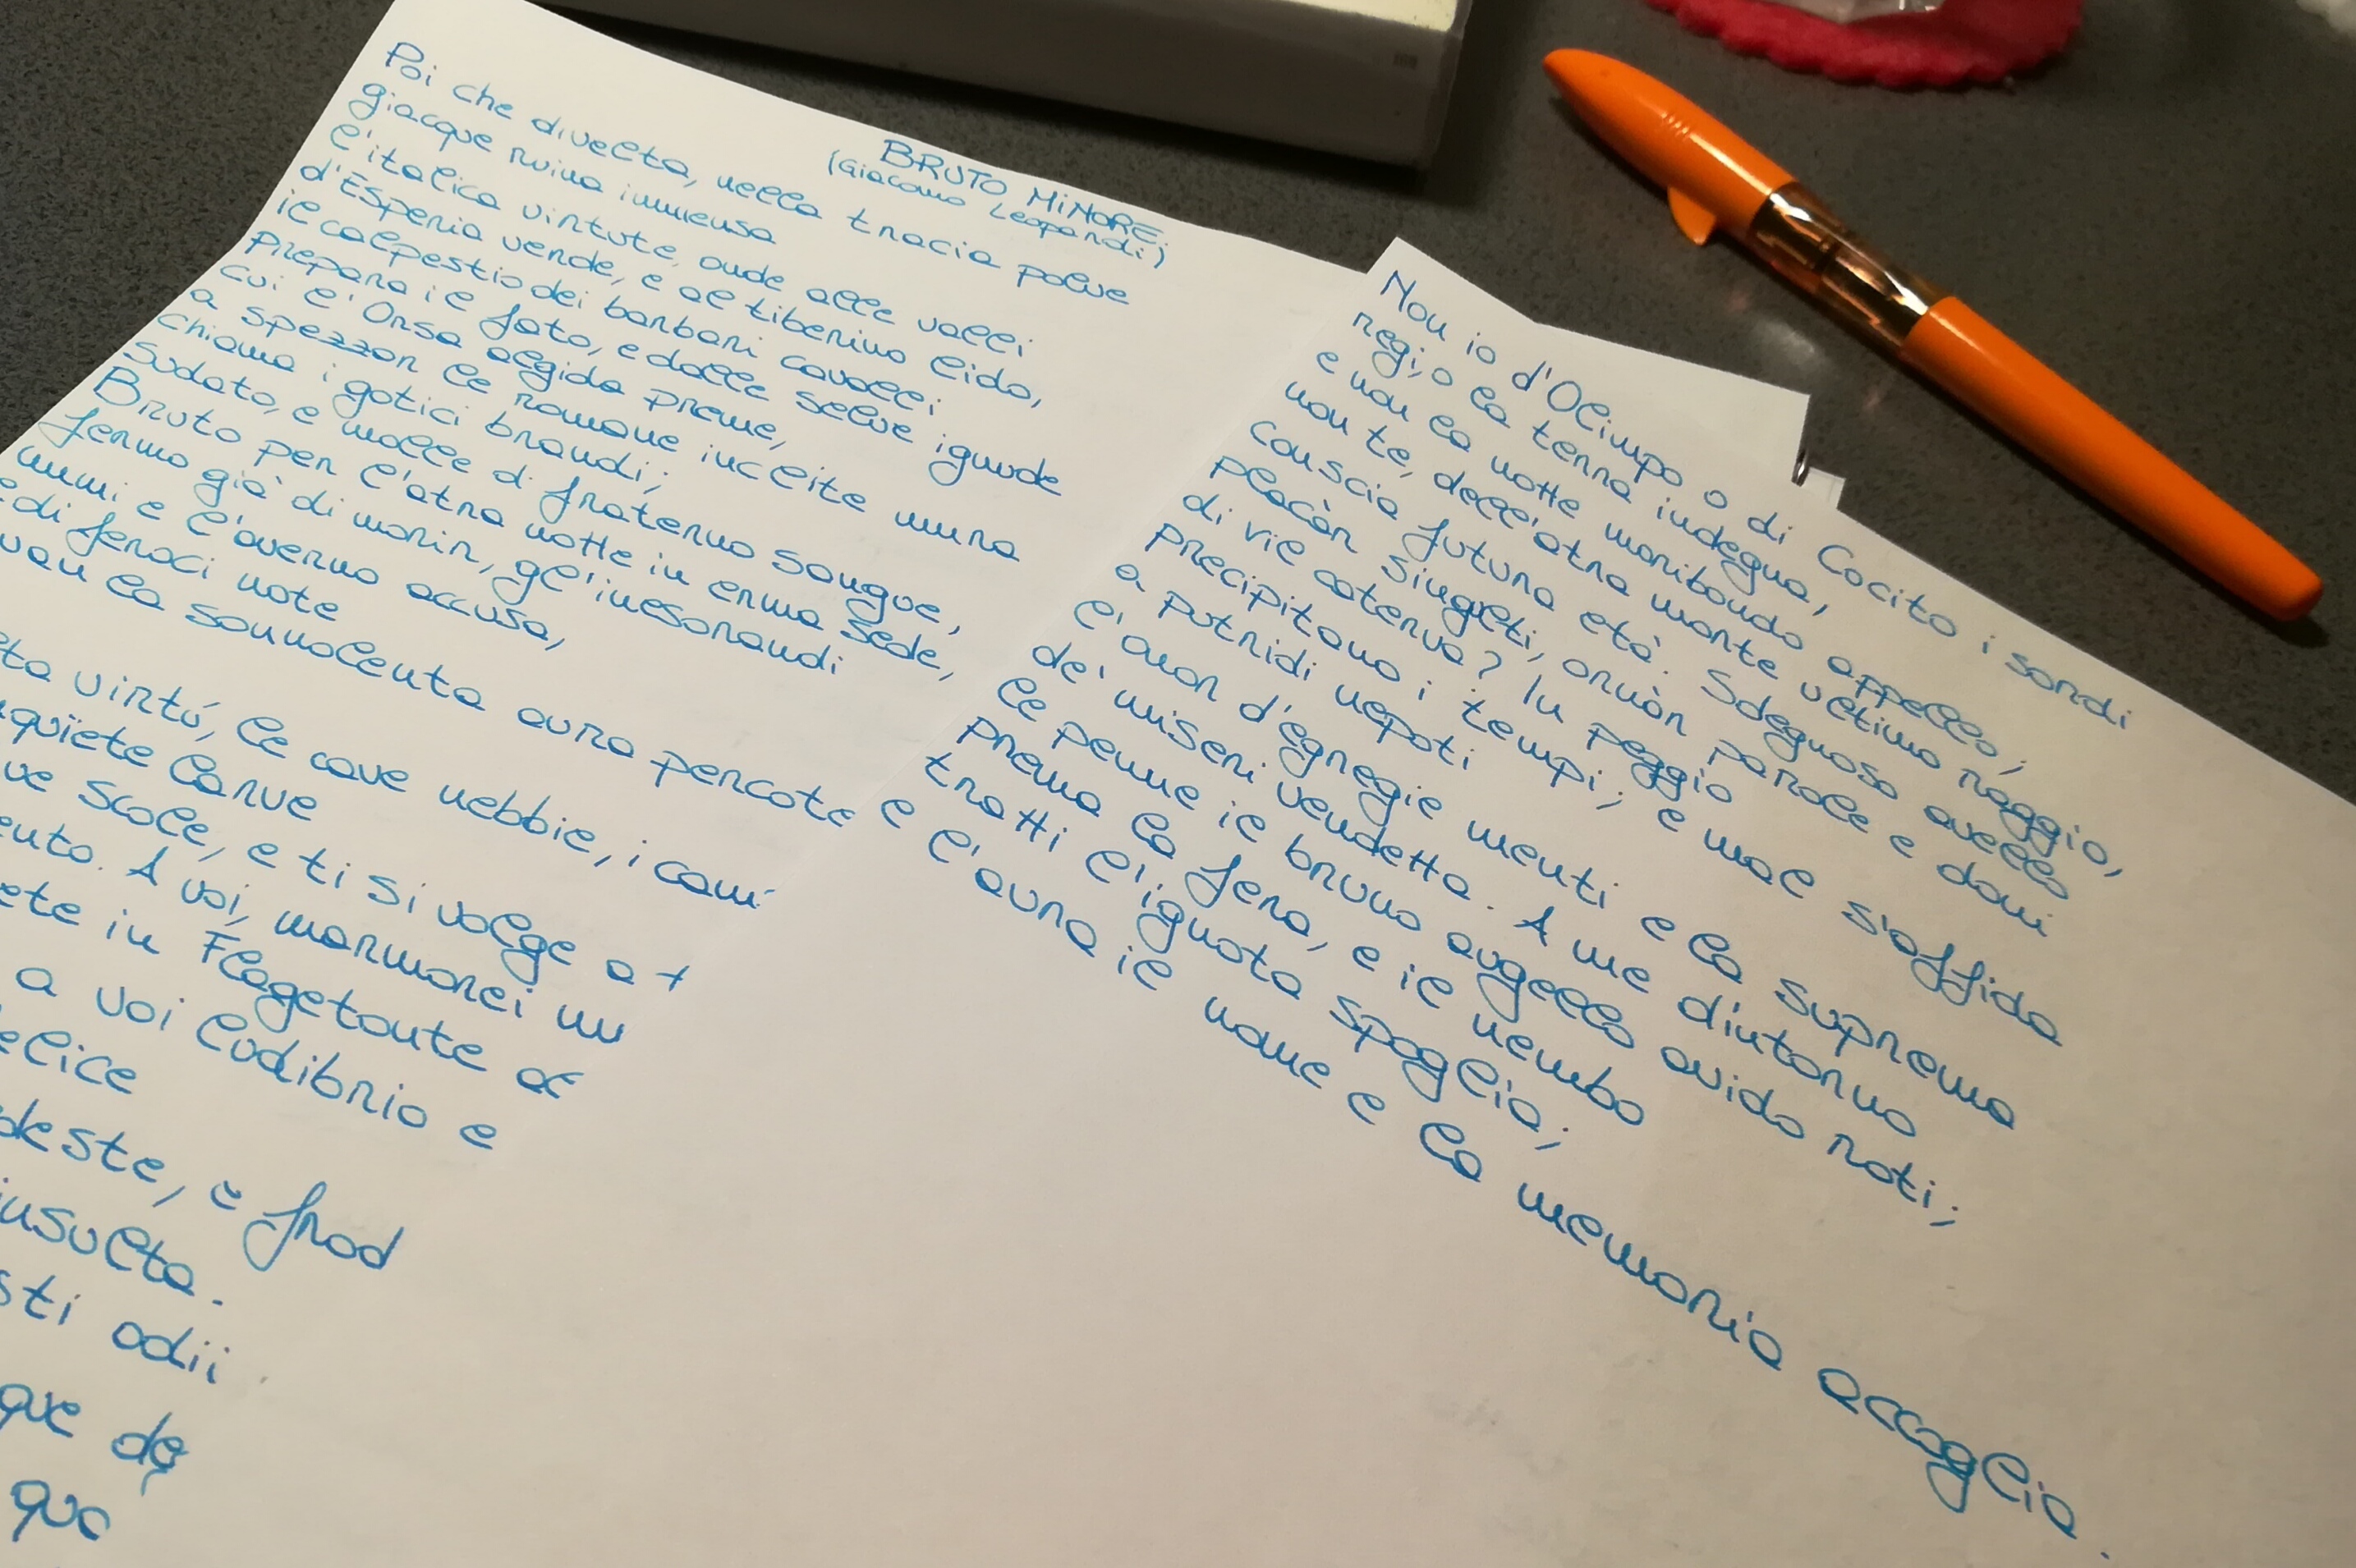 BRUTO MINORE;
(Giacomo Leopardi)
Poi che divelta, nella tracia polve
giacque ruina immensa
l'italica virtute, onde alle valli
d'Esperia verde, e al tiberino lido,
il calpestio dei barbari cavalli
prepara il fato, e dalle selve ignude
cui l'Orsa algida preme,
a spezzar le romane inclite mura
chiama i gotici brandi;
sudato, e molle di fraterno sangue,
Bruto per l'atra notte in erma sede,
fermo già di morir, gl'inesorandi
numi e l'averno accusa,
e di feroci note
van la sonnolenta aura percote
ta virtú, le cave nebbie, i cam
quïete larve
ue scole, e ti si volge a t
ento. A voi, marmorei nu
ete in Flagetonte al
a voi ludibrio e
elice
deste, e frod
insulta.
sti odii
que de
qua
Non io d'Olimpo o di Cocito i sordi
regi, o la terra indegna,
e non la notte moribondo appello;
non te, dell'atra morte ultimo raggio,
conscia futura età. Sdegnoso avello
placàr singulti, ornàr parole e doni
di vil caterva? In peggio
precipitano i tempi; e mal s'affida
a putridi nepoti
l'onor d'egregie menti e la suprema
de' miseri vendetta. A me dintorno
le penne il bruno augello avido roti;
prema la fera, e il nembo
tratti l'ignota spoglia;
e l'aura il nome e la memoria accoglia.